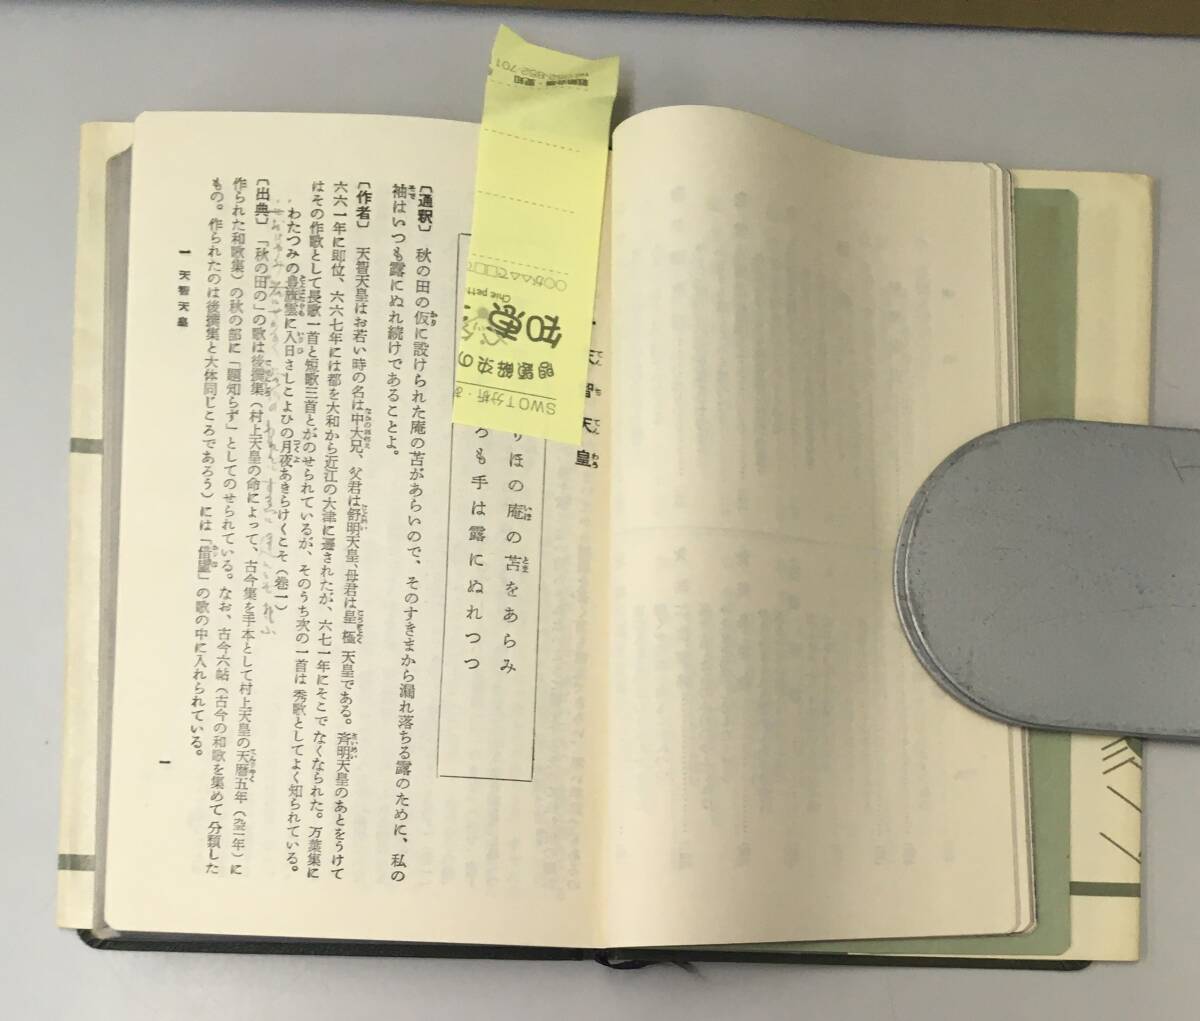 一 天智天皇
りほの庵の苫をあらみ
ろも手は露にぬれつつ
〔通釈〕 秋の田の仮に設けられた庵の苫があらいので、そのすきまから漏れ落ちる露のために、私の
袖はいつも露にぬれ続けであることよ。
〔作者〕 天智天皇はお若い時の名は中大兄、父君は舒明天皇、母君は皇極天皇である。斉明天皇のあとをうけて
六六一年に即位、六六七年には都を大和から近江の大津に遷されたが、六七一年にそこでなくなられた。万葉集に
はその作歌として長歌一首と短歌三首とがのせられているが、そのうち次の一首は秀歌としてよく知られている。
わたつみの豊旗雲に入日さしこよひの月夜あきらけくこそ(巻一)
〔出典〕 「秋の田の」の歌は後撰集(村上天皇の命によって、古今集を手本として村上天皇の天暦五年(九五一年)に
作られた和歌集)の秋の部に「題知らず」としてのせられている。なお、古今六帖(古今の和歌を集めて分類した
もの。作られたのは後撰集と大体同じころであろう)には「借廬」の歌の中に入れられている。
一 天智天皇
一
SWOT分析・
問題解決の
知恵
Chie pet
〇〇が△△で□□で
戦略会議・愛知